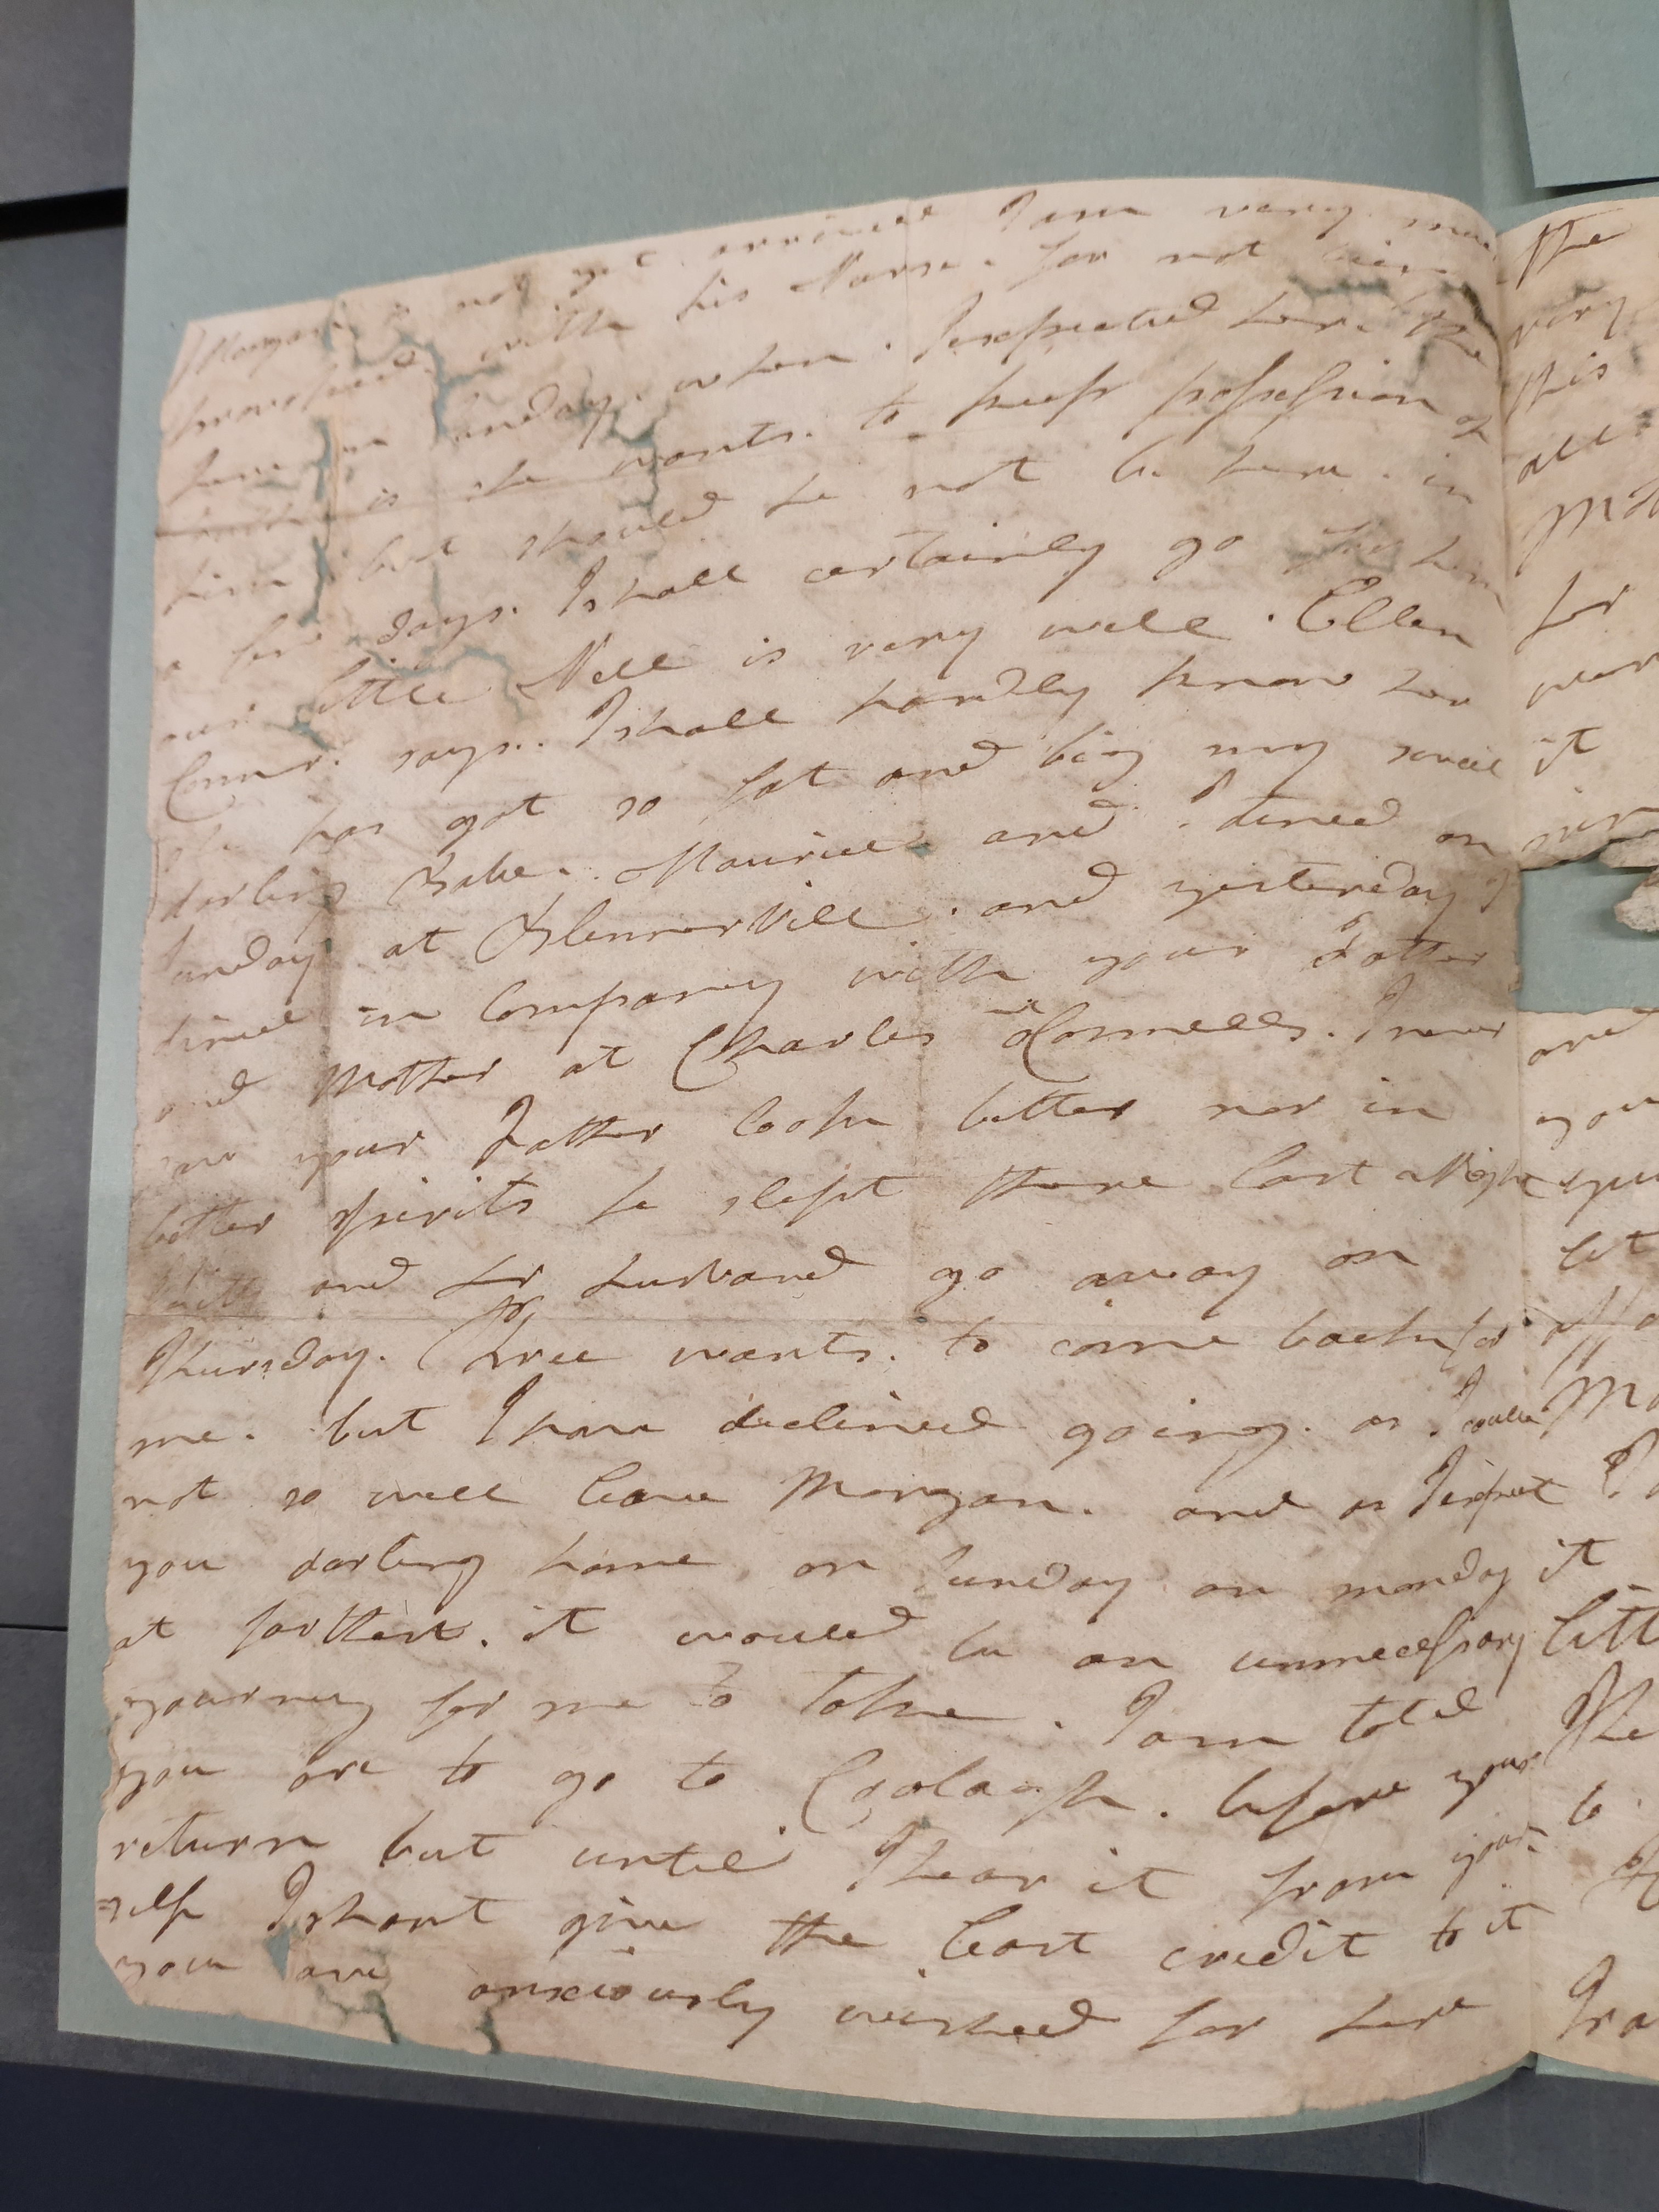 Morgan is not yet arrived I am very much
provoked with his Nurse. for not being
here on Sunday. when. I expected her. the
truth is she wants. to keep possession of
him but should he not be here. in
a few days. I shall certainly go for him
our little Nell is very well. Ellen
Connor. says.. I shall hardly know her
she has got so fat and big my sweet
darling Babe. Maurice and I dined on
Sunday at Blennerville. and yesterday I
dined in Company with your Father
and Mother at Charles OConnells. I never
saw your Father look better nor in
better spirits he slept there last Night
and her husband go away on
Thursday. Chree wants. to come back for
me. but I have declined going. as I could
not so well leave Morgan. and as I expect
you darling home on Sunday or monday
at farthest. it would be an unnecessary
journey for me to take. I am told
you are to go to before your
return but until I hear it from your
=self I shant give the least credit to it
you are anxiously wished for here
The
very
this
all
for
it
and
you
let
it
The